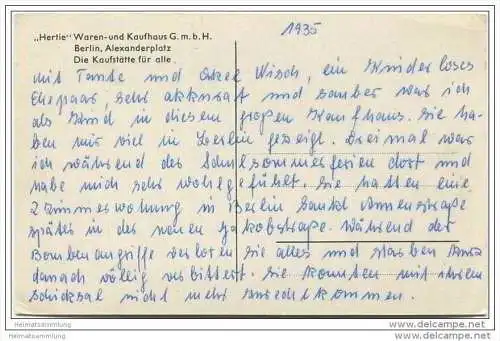 „Hertie" Waren-und Kaufhaus G.m.b.H.
Berlin, Alexanderplatz
Die Kaufstätte für alle.
1935
mit Tante und Onkel Wisch, ein Kinderloses
Ehepaar, sehr akkurat und sauber war ich
als Kind in diesem großen Kaufhaus. Sie ha-
ben mir viel in Berlin gezeigt. Dreimal war
ich während der Schulsommerferien dort und
habe mich sehr wohlgefühlt. Sie hatten eine
2 Zimmerwohung in Berlin Sankt Annenstraße
später in der neuen Jakobstraße. Während der
Bombenangriffe verloren sie alles und starben kurz
danach völlig verbittert. Sie konnten mit ihrem
Schicksal nicht mehr zurechtkommen.
Heimatsammlung
Heimatsammlung
www.delcampe.net